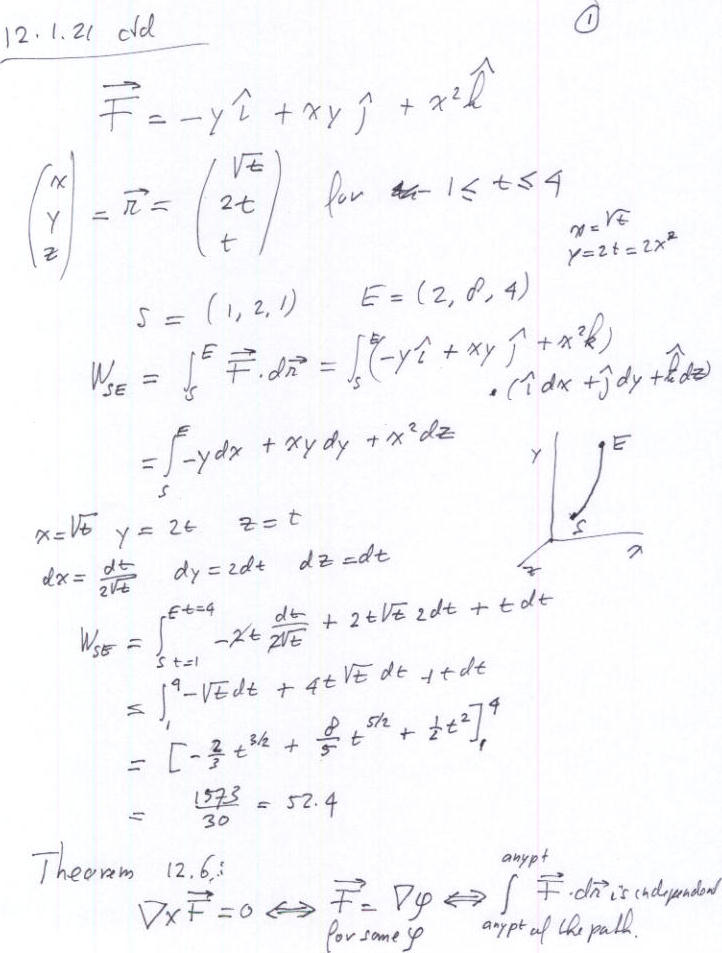 12.1.21 ctd ①
F⃗ = -y î + xy ĵ + x² k̂
(x y z) = r⃗ = (√t 2t t) for 1 ≤ t ≤ 4
x = √t
y = 2t = 2x²
S = (1, 2, 1) E = (2, 8, 4)
W_SE = ∫_S^E F⃗ · dr⃗ = ∫_S^E (-y î + xy ĵ + x² k̂)
· (î dx + ĵ dy + k̂ dz)
= ∫_S^E -y dx + xy dy + x² dz
y E
S
z x
x = √t y = 2t z = t
dx = dt/(2√t) dy = 2dt dz = dt
W_SE = ∫_{S t=1}^{E t=4} -2t dt/(2√t) + 2t√t 2dt + t dt
= ∫_1^4 -√t dt + 4t√t dt + t dt
= [-2/3 t^{3/2} + 8/5 t^{5/2} + 1/2 t²]_1^4
= 1573/30 = 52.4
Theorem 12.6:
∇×F⃗ = 0 ⟺ F⃗ = ∇φ for some φ ⟺ ∫_{any pt}^{any pt} F⃗ · dr⃗ is independent
of the path.